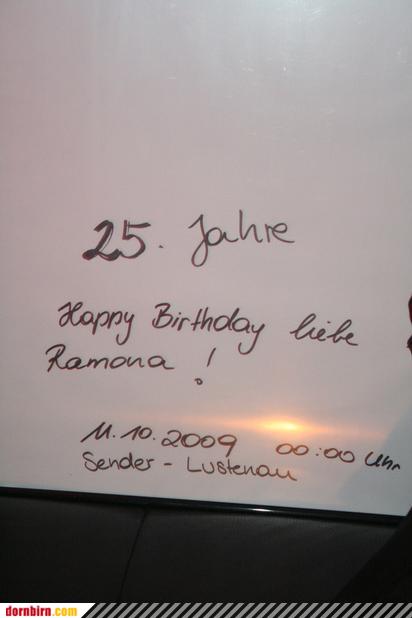 25. Jahre
Happy Birthday liebe
Ramona !
11.10.2009 00:00 Uhr
Sender - Lustenau
dornbirn.com